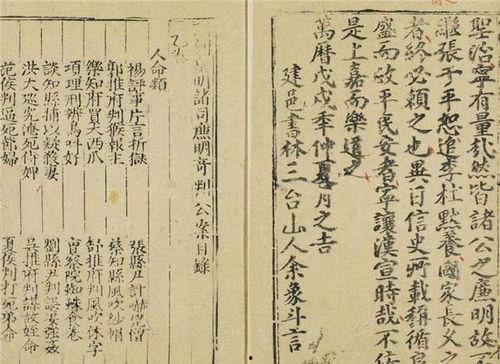 聖治寧有量哉然皆諸公之廉明故
繼張于平恕追李杜默養國家長久之
者終必賴之也異日信史所載循良
盛而政平民安者寧讓漢宣時哉不佞
是上嘉而樂道之
萬曆戊戌季仲夏月之吉
建邑書林三台山人余象斗言
明諸司廉明奇判公案目錄
人命類
楊評事片言折獄 張縣尹計嚇兇僧
郭推府判猴報主 蔡知縣風吹紗帽
樂知府買大西瓜 舒推府判風吹休字
項理刑辨鳥叫好 曾察院蜘蛛食卷
談知縣捕以疑殺妻 劉縣尹判誤妻強姦
洪大巡究淹死侍婢 吳推府判謀故姪命
范侯判逼死節婦 夏侯判打死弟命